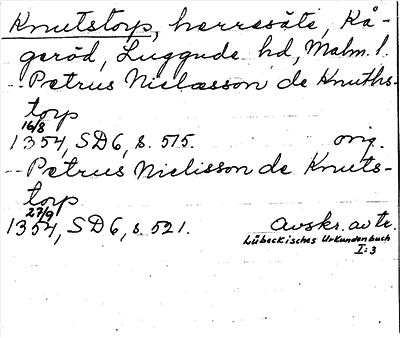 Knutstorp, herresäte, Kå-
geröd, Luggude hd, Malm. l.
-- Petrus Nielæsson de Knuths-
torp
16/8
1354, SD6, s. 515. orig.
-- Petrus Nielisson de Knuts-
torp
27/9
1354, SD6, s. 521. Avskr. av tr.
Lübeckisches Urkundenbuch
I:3